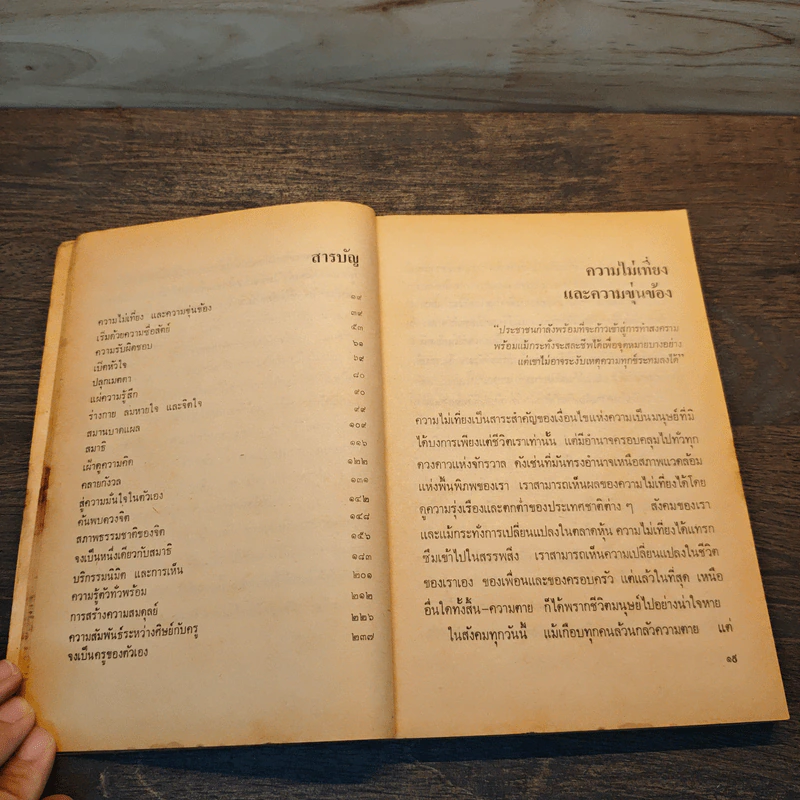 สารบัญ
ความไม่เที่ยง และความขุ่นข้อง ๑๙
เริ่มด้วยความซื่อสัตย์ ๓๙
ความรับผิดชอบ ๕๓
เปิดหัวใจ ๖๑
ปลุกเมตตา ๖๙
แผ่ความรู้สึก ๘๐
ร่างกาย ลมหายใจ และจิตใจ ๙๐
สมานบาดแผล ๙๙
สมาธิ ๑๐๙
เฝ้าดูความคิด ๑๑๖
คลายกังวล ๑๒๒
สู่ความมั่นใจในตัวเอง ๑๓๑
ค้นพบดวงจิต ๑๔๒
สภาพธรรมชาติของจิต ๑๔๘
จงเป็นหนึ่งเดียวกับสมาธิ ๑๕๖
บริกรรมนิมิต และการเห็น ๑๘๓
ความรู้ตัวทั่วพร้อม ๒๐๑
การสร้างความสมดุลย์ ๒๑๒
ความสัมพันธ์ระหว่างศิษย์กับครู ๒๒๖
จงเป็นครูของตัวเอง ๒๓๗
ความไม่เที่ยง
และความขุ่นข้อง
"ประชาชนกำลังพร้อมที่จะก้าวเข้าสู่การทำสงคราม
พร้อมแม้กระทั่งจะสละชีพได้เพื่อจุดหมายบางอย่าง
แต่เขาไม่อาจระงับเหตุความทุกข์ระทมลงได้"
ความไม่เที่ยงเป็นสาระสำคัญของเงื่อนไขแห่งความเป็นมนุษย์ที่มิ
ได้บงการเพียงแต่ชีวิตเราเท่านั้น แต่มีอำนาจครอบคลุมไปทั่วทุก
ดวงดาวแห่งจักรวาล ดังเช่นที่มันทรงอำนาจเหนือสภาพแวดล้อม
แห่งพื้นพิภพของเรา เราสามารถเห็นผลของความไม่เที่ยงได้โดย
ดูความรุ่งเรืองและตกต่ำของประเทศชาติต่าง ๆ สังคมของเรา
และแม้กระทั่งการเปลี่ยนแปลงในตลาดหุ้น ความไม่เที่ยงได้แทรก
ซึมเข้าไปในสรรพสิ่ง เราสามารถเห็นความเปลี่ยนแปลงในชีวิต
ของเราเอง ของเพื่อนและของครอบครัว แต่แล้วในที่สุด เหนือ
อื่นใดทั้งสิ้น-ความตาย ก็ได้พรากชีวิตมนุษย์ไปอย่างน่าใจหาย
ในสังคมทุกวันนี้ แม้เกือบทุกคนล้วนกลัวความตาย แต่
๑๙